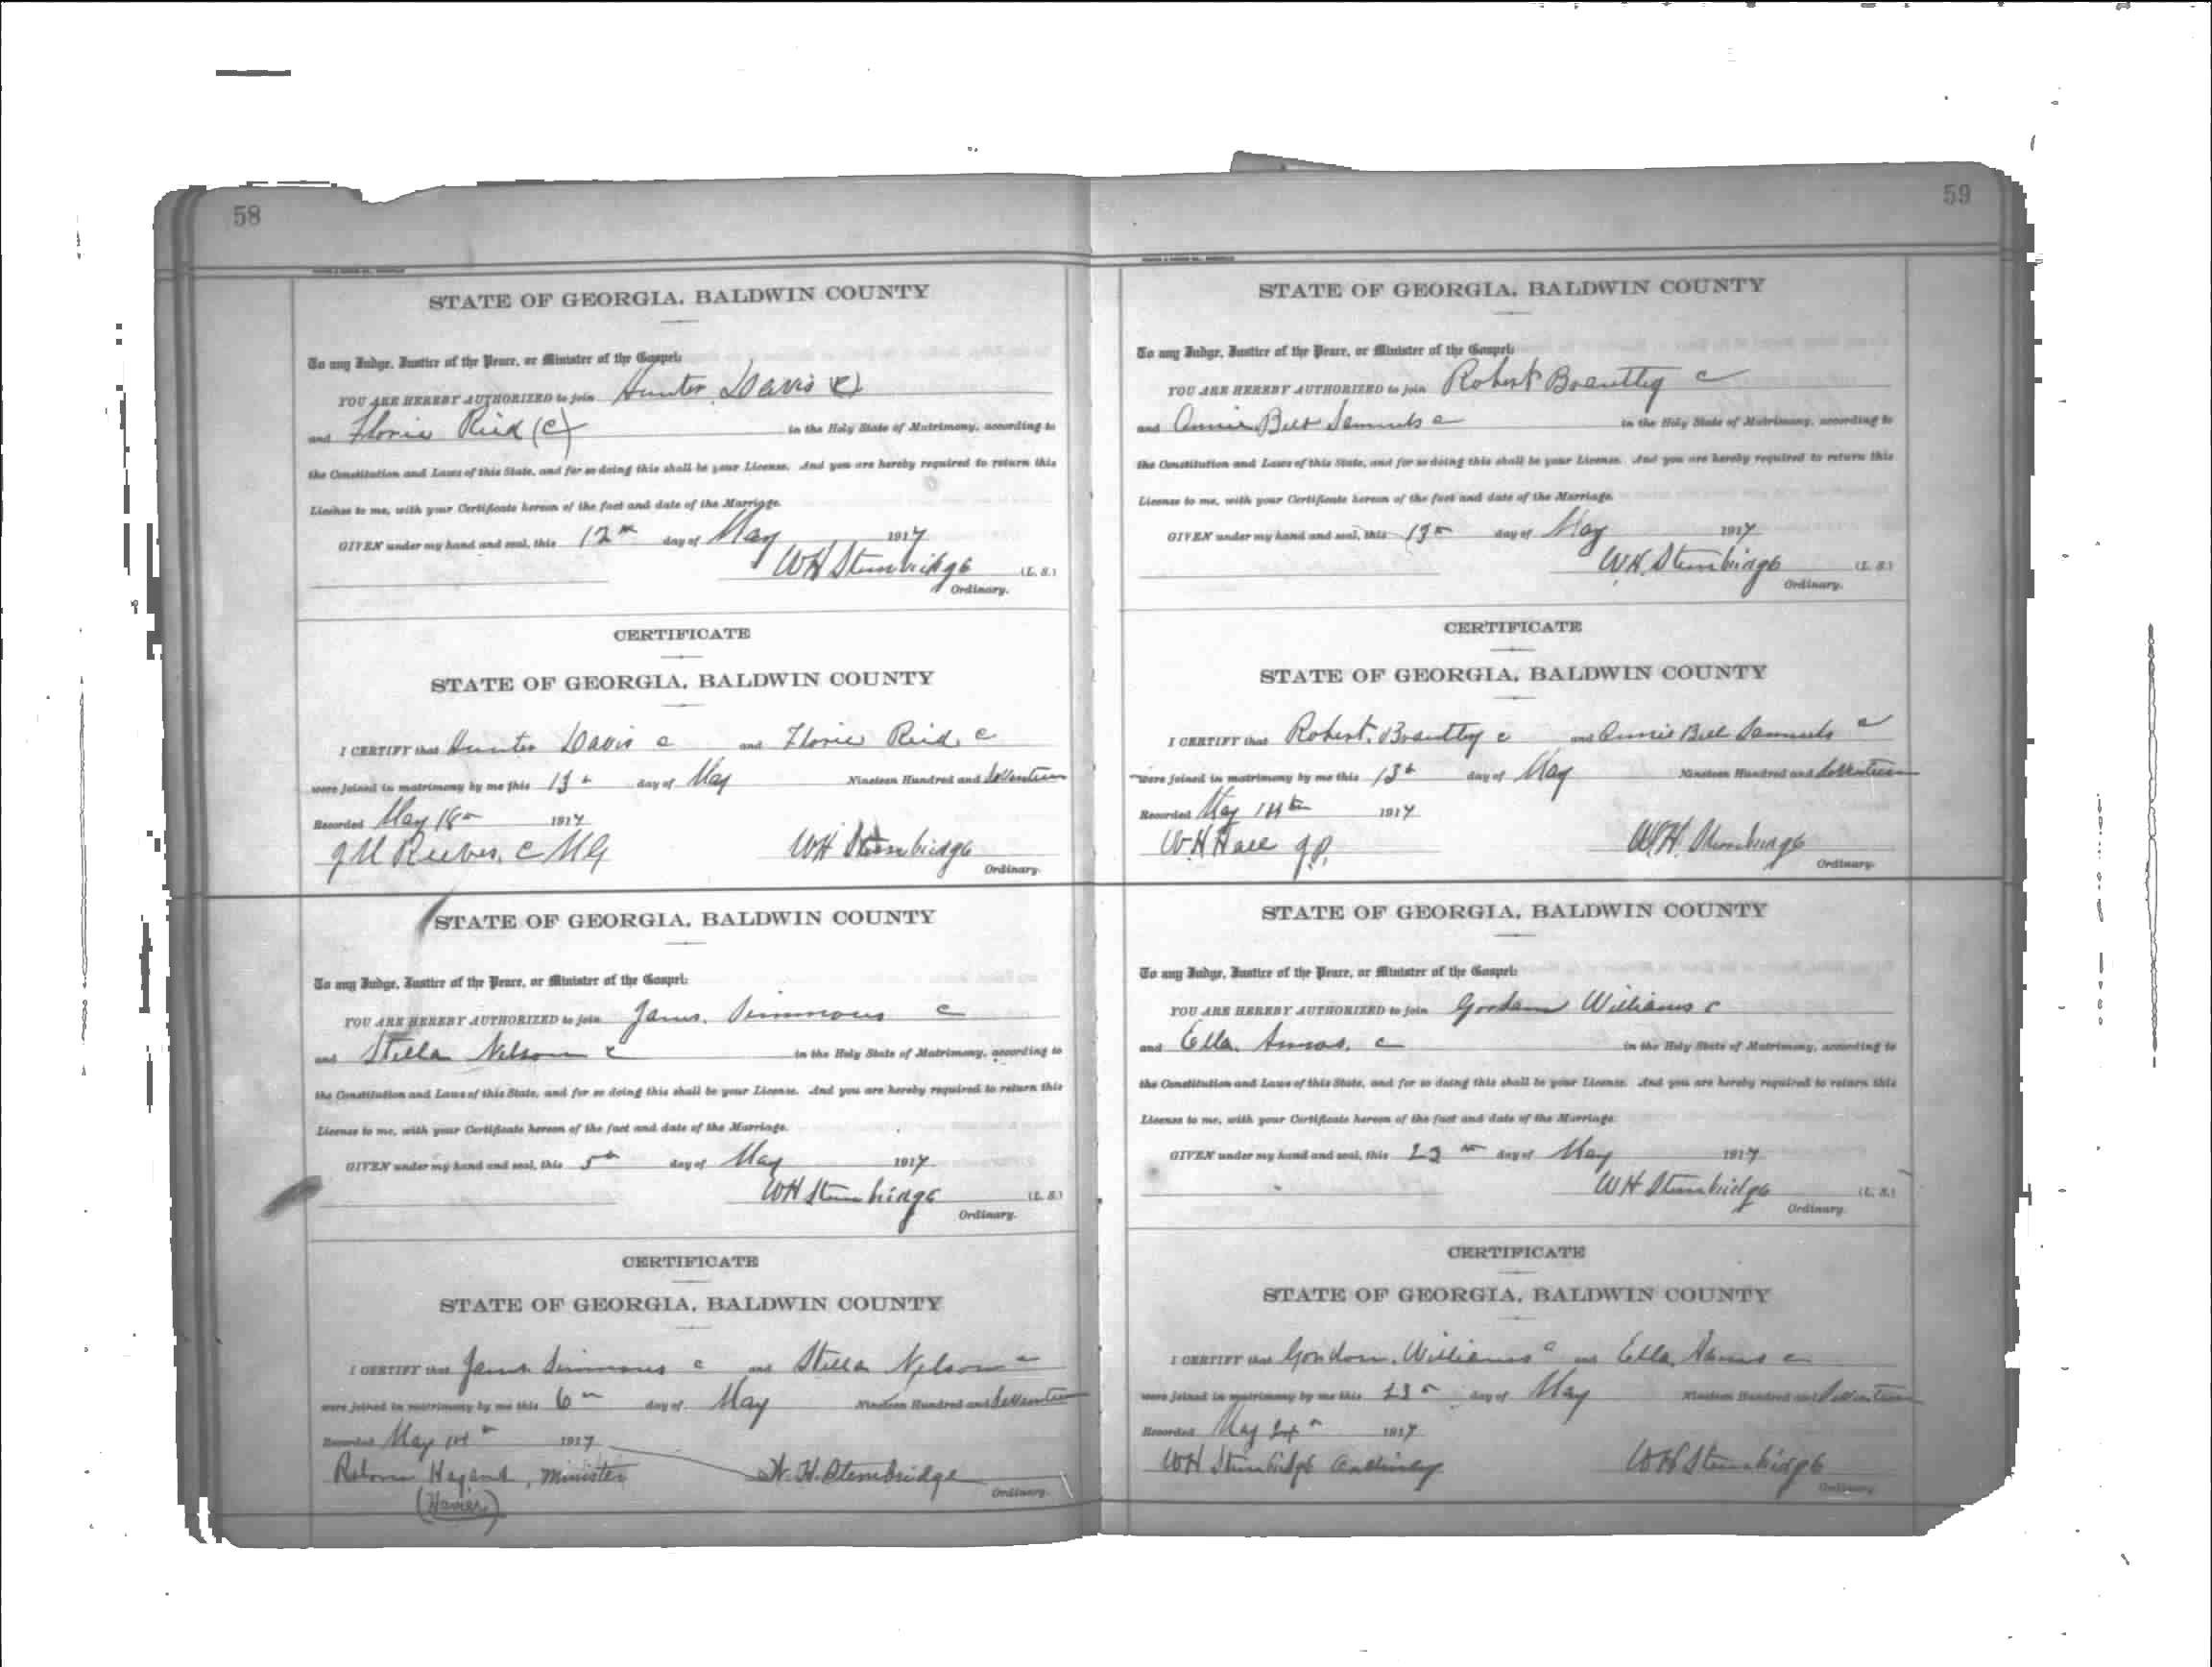 58
STATE OF GEORGIA, BALDWIN COUNTY
To any Judge, Justice of the Peace, or Minister of the Gospel:
YOU ARE HEREBY AUTHORIZED to join Hunter Davis (C)
and Florie Reid (C) in the Holy State of Matrimony, according to
the Constitution and Laws of this State, and for so doing this shall be your License. And you are hereby required to return this
License to me, with your Certificate hereon of the fact and date of the Marriage.
GIVEN under my hand and seal, this 12th day of May 1917
WH Stembridge (L. S.)
Ordinary.
CERTIFICATE
STATE OF GEORGIA, BALDWIN COUNTY
I CERTIFY that Hunter Davis c and Florie Reid c
were joined in matrimony by me this 13th day of May Nineteen Hundred and Seventeen
Recorded May 18th 1917
J M Reeves, C M G WH Stembridge
Ordinary.
STATE OF GEORGIA, BALDWIN COUNTY
To any Judge, Justice of the Peace, or Minister of the Gospel:
YOU ARE HEREBY AUTHORIZED to join James Simmons c
and Stella Nelson c in the Holy State of Matrimony, according to
the Constitution and Laws of this State, and for so doing this shall be your License. And you are hereby required to return this
License to me, with your Certificate hereon of the fact and date of the Marriage.
GIVEN under my hand and seal, this 5th day of May 1917
WH Stembridge (L. S.)
Ordinary.
CERTIFICATE
STATE OF GEORGIA, BALDWIN COUNTY
I CERTIFY that James Simmons c and Stella Nelson c
were joined in matrimony by me this 6th day of May Nineteen Hundred and Seventeen
Recorded May 14th 1917
Minister W. H. Stembridge
Ordinary.
59
STATE OF GEORGIA, BALDWIN COUNTY
To any Judge, Justice of the Peace, or Minister of the Gospel:
YOU ARE HEREBY AUTHORIZED to join Robert Brantley c
and Annie Bell Samuels c in the Holy State of Matrimony, according to
the Constitution and Laws of this State, and for so doing this shall be your License. And you are hereby required to return this
License to me, with your Certificate hereon of the fact and date of the Marriage.
GIVEN under my hand and seal, this 13th day of May 1917
W.H. Stembridge (L. S.)
Ordinary.
CERTIFICATE
STATE OF GEORGIA, BALDWIN COUNTY
I CERTIFY that Robert Brantley c and Annie Bell Samuels c
were joined in matrimony by me this 13th day of May Nineteen Hundred and Seventeen
Recorded May 14th 1917
W.H Hall J.P. W.H. Stembridge
Ordinary.
STATE OF GEORGIA, BALDWIN COUNTY
To any Judge, Justice of the Peace, or Minister of the Gospel:
YOU ARE HEREBY AUTHORIZED to join Gordon Williams c
and Ella c in the Holy State of Matrimony, according to
the Constitution and Laws of this State, and for so doing this shall be your License. And you are hereby required to return this
License to me, with your Certificate hereon of the fact and date of the Marriage.
GIVEN under my hand and seal, this 23rd day of May 1917
WH Stembridge (L. S.)
Ordinary.
CERTIFICATE
STATE OF GEORGIA, BALDWIN COUNTY
I CERTIFY that Gordon Williams c and Ella c
were joined in matrimony by me this 23rd day of May Nineteen Hundred and Seventeen
Recorded May 1917
WH Stembridge Ordinary WH Stembridge
Ordinary.